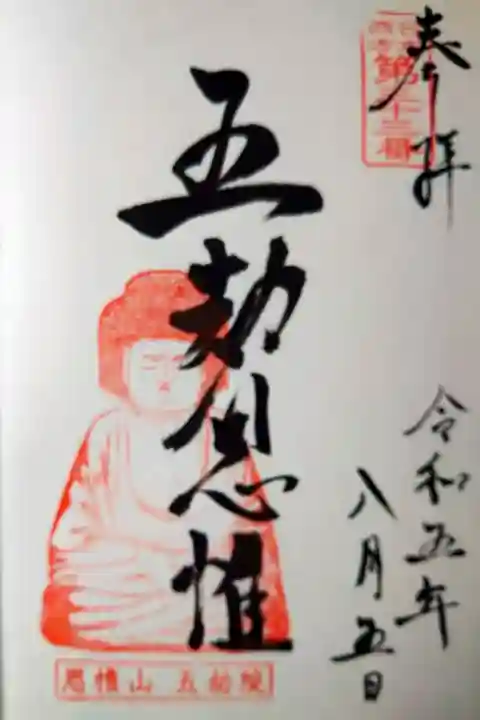 奉拝
令和五年
八月五日
五劫思惟
思惟山 五劫院